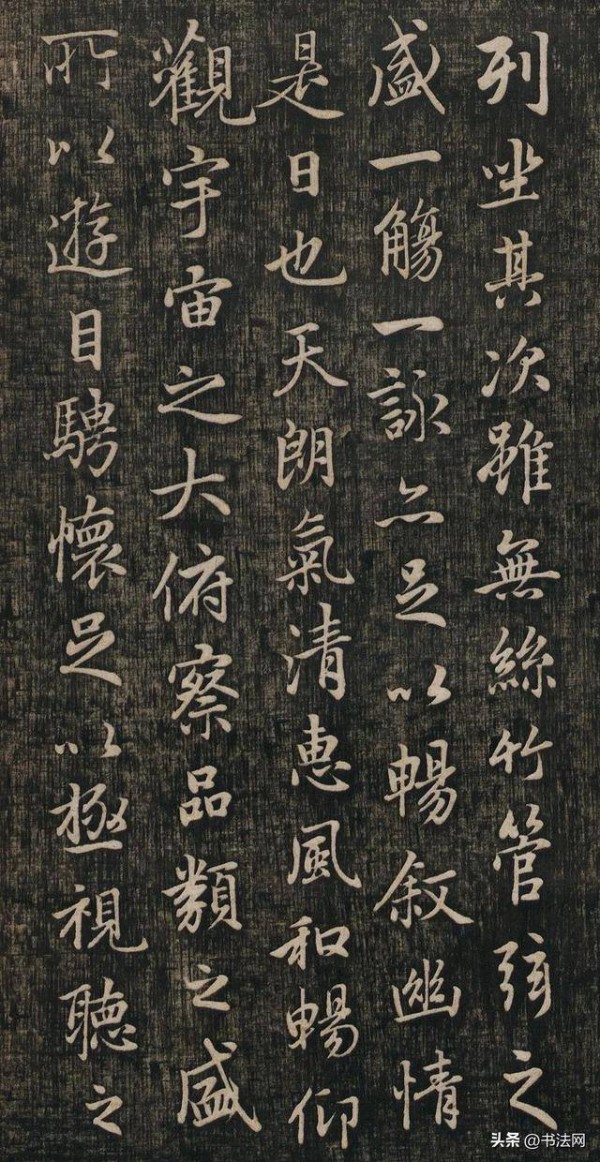 列坐其次雖無絲竹管弦之
盛一觴一詠亦足以暢叙幽情
是日也天朗氣清惠風和暢仰
觀宇宙之大俯察品類之盛
所以遊目騁懷足以極視聽之
头条 @书法网